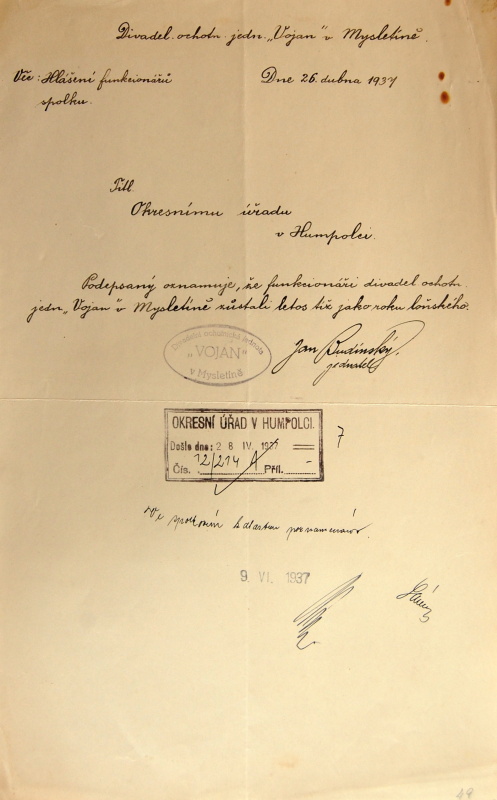 Divadel. ochotn. jedn. „Vojan" v Mysletíně.
Věc: Hlášení funkcionářů
spolku.
Dne 26. dubna 1937
Titl.
Okresnímu úřadu
v Humpolci.
Podepsaný oznamuje, že funkcionáři divadel. ochotn.
jedn. „Vojan" v Mysletíně zůstali letos tiž jako roku loňského.
Divadelní ochotnická jednota
„VOJAN"
v Mysletíně
Jan Rudínský,
jednatel
OKRESNÍ ÚŘAD V HUMPOLCI.
Došlo dne: 28 IV. 1937
Čís. 12/214 A Příl. -
7
Ve spolkovém katastru poznamenáno.
9. VI. 1937
49